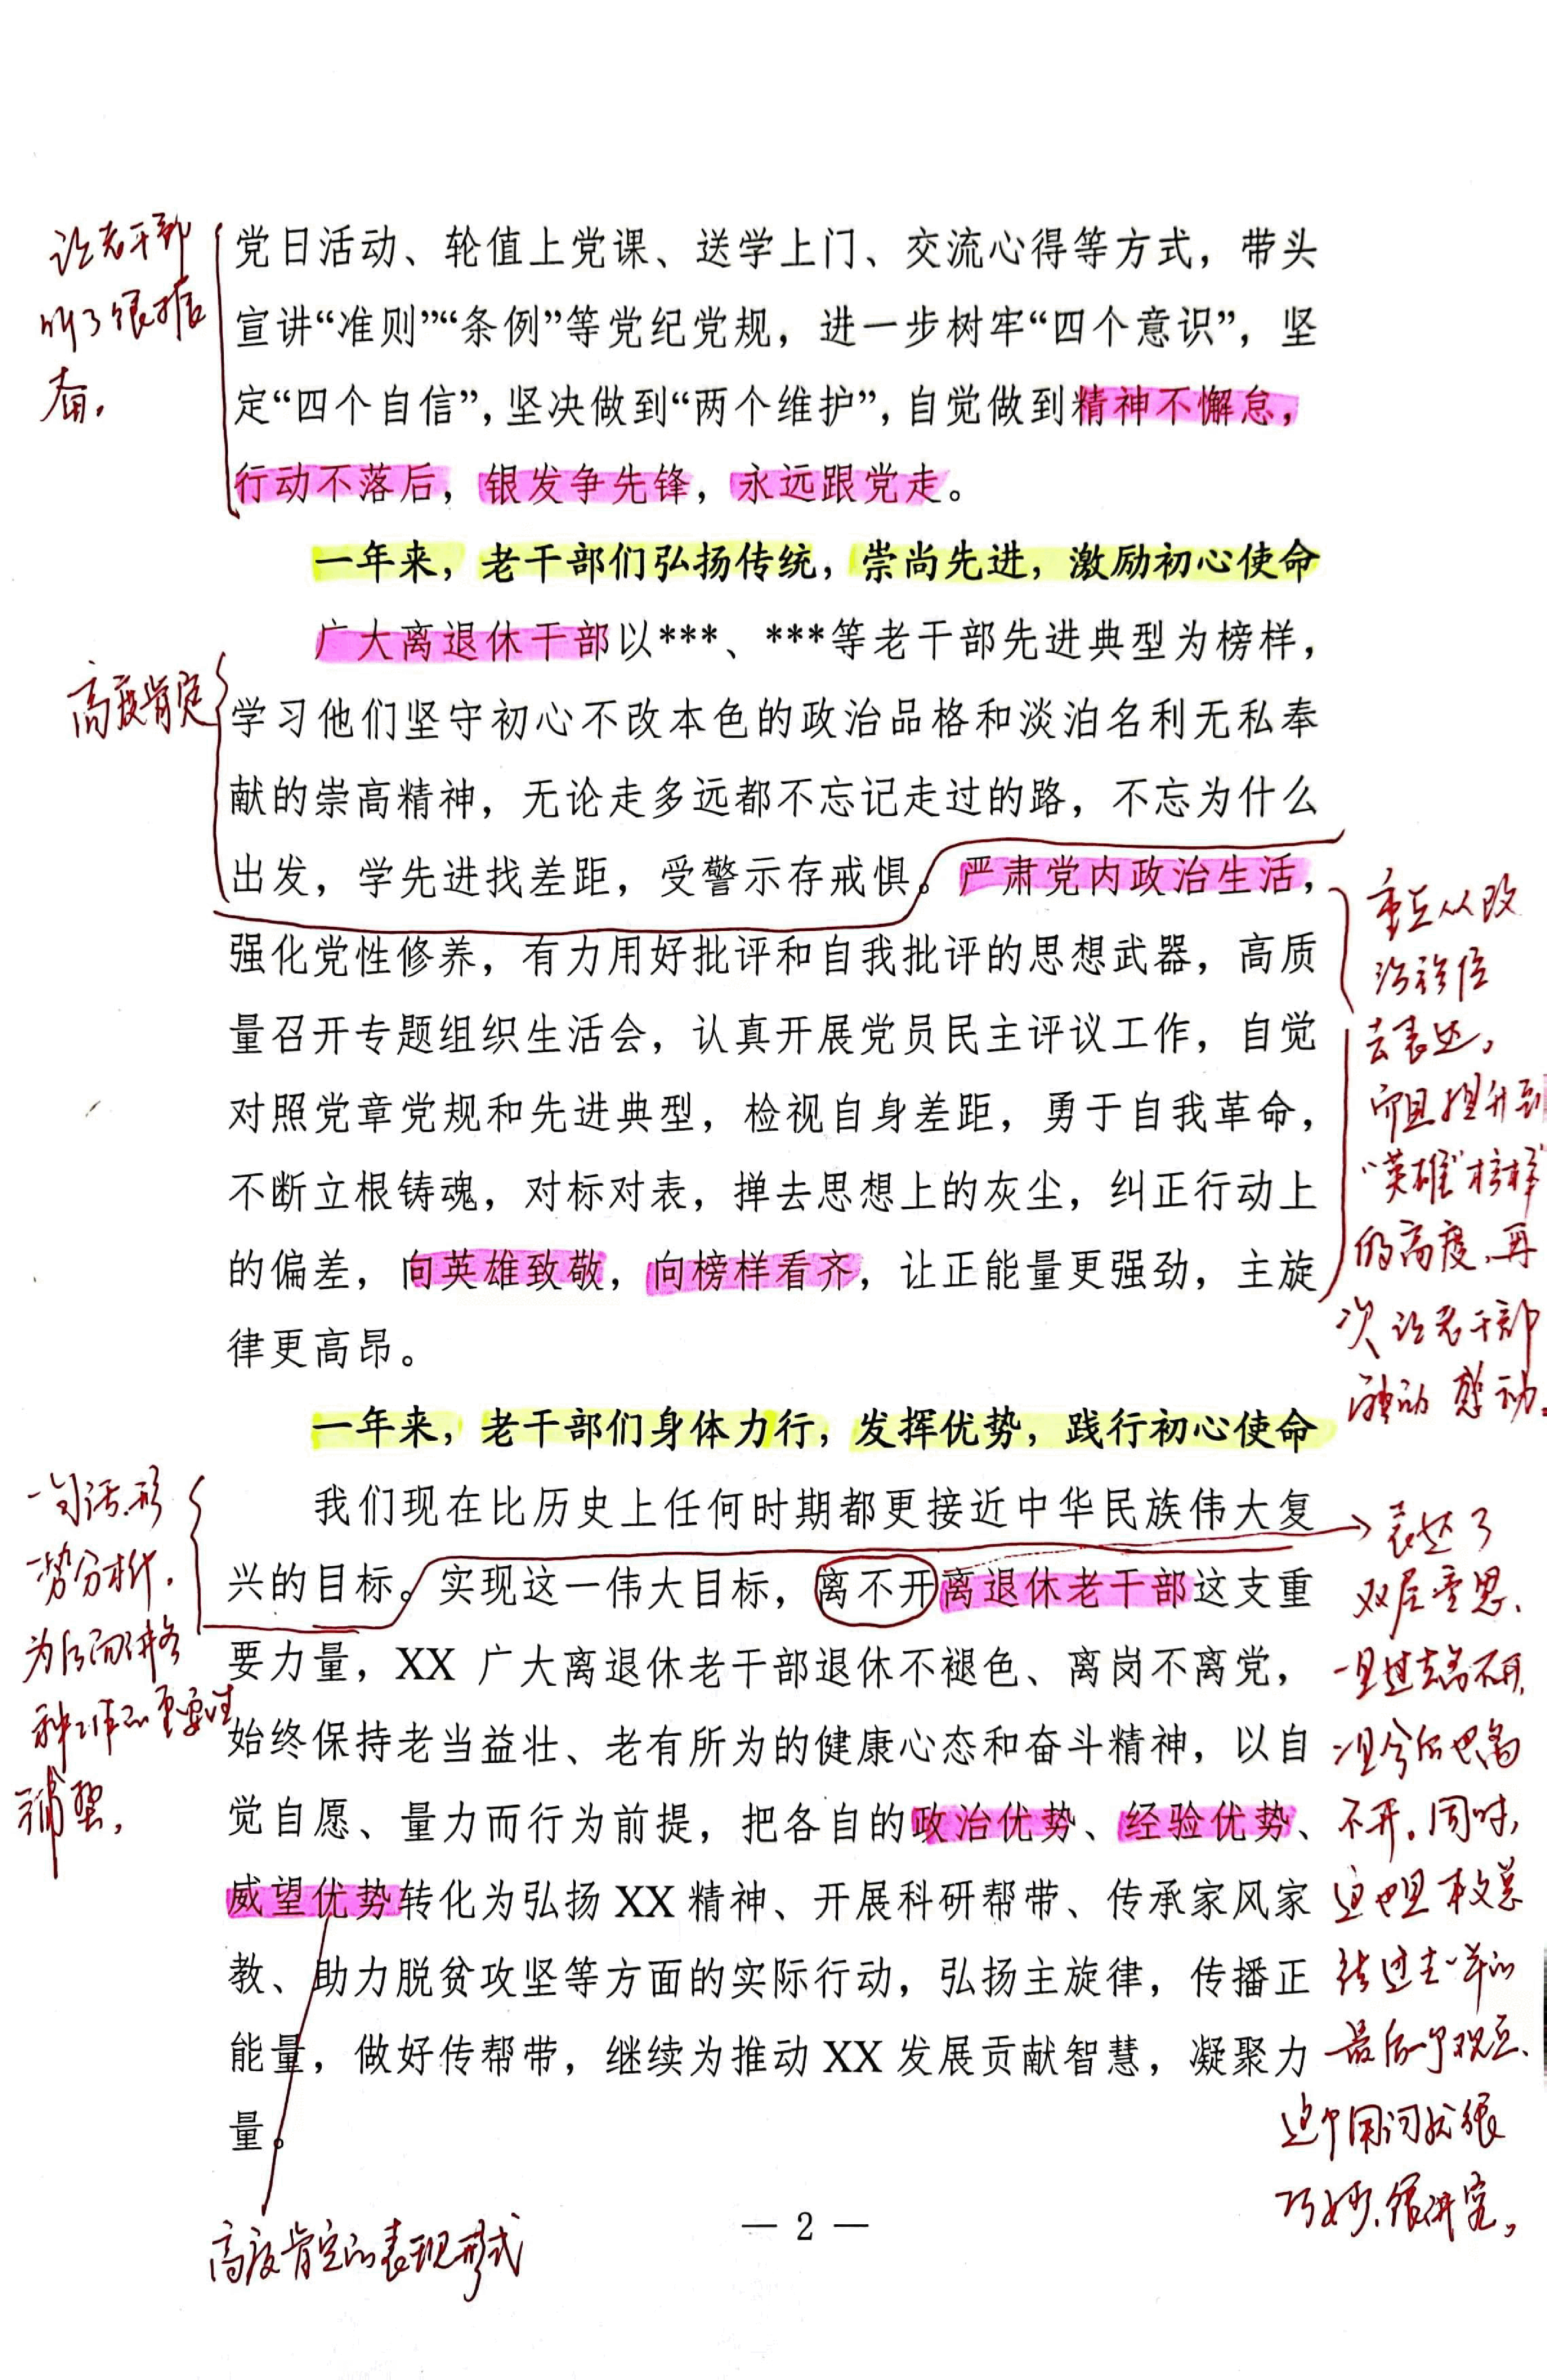 党日活动、轮值上党课、送学上门、交流心得等方式，带头
宣讲“准则”“条例”等党纪党规，进一步树牢“四个意识”，坚
定“四个自信”，坚决做到“两个维护”，自觉做到精神不懈怠，
行动不落后，银发争先锋，永远跟党走。
让老干部
听了很振
奋。
一年来，老干部们弘扬传统，崇尚先进，激励初心使命
广大离退休干部以***、***等老干部先进典型为榜样，
学习他们坚守初心不改本色的政治品格和淡泊名利无私奉
献的崇高精神，无论走多远都不忘记走过的路，不忘为什么
出发，学先进找差距，受警示存戒惧。严肃党内政治生活，
强化党性修养，有力用好批评和自我批评的思想武器，高质
量召开专题组织生活会，认真开展党员民主评议工作，自觉
对照党章党规和先进典型，检视自身差距，勇于自我革命，
不断立根铸魂，对标对表，掸去思想上的灰尘，纠正行动上
的偏差，向英雄致敬，向榜样看齐，让正能量更强劲，主旋
律更高昂。
高度肯定
重点从政
治
去表达，
而且提升到
“英雄”榜样
的高度，再
次让老干部
感动。
一年来，老干部们身体力行，发挥优势，践行初心使命
我们现在比历史上任何时期都更接近中华民族伟大复
兴的目标。实现这一伟大目标，离不开离退休老干部这支重
要力量，XX 广大离退休老干部退休不褪色、离岗不离党，
始终保持老当益壮、老有所为的健康心态和奋斗精神，以自
觉自愿、量力而行为前提，把各自的政治优势、经验优势、
威望优势转化为弘扬 XX 精神、开展科研帮带、传承家风家
教、助力脱贫攻坚等方面的实际行动，弘扬主旋律，传播正
能量，做好传帮带，继续为推动 XX 发展贡献智慧，凝聚力
量。
一句话形
势分析，
为后面讲各
种工作的重要性
铺垫，
表达了
双层意思、
一是过去离不开，
一是今后也离
不开。同时，
这也是本文总
结过去一年的
最后一个观点、
这个用词就很
巧妙、很讲究。
高度肯定的表现形式
— 2 —